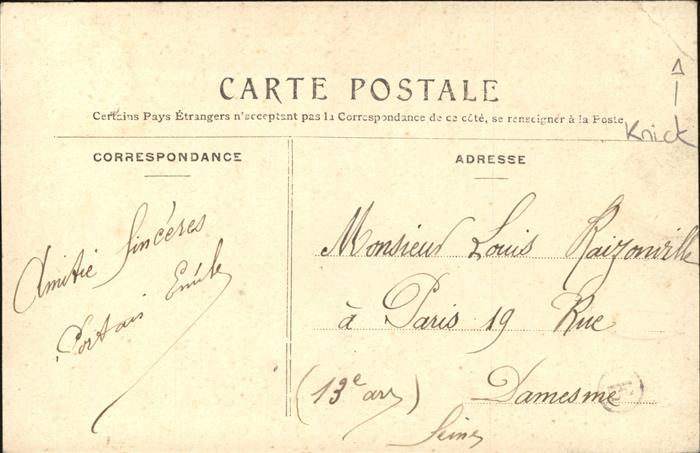 CARTE POSTALE
Certains Pays Étrangers n'acceptant pas la Correspondance de ce côté, se renseigner à la Poste
Knick
CORRESPONDANCE
Amitié Sincères
Portais Emile
ADRESSE
Monsieur Louis Raizonville
à Paris 19 Rue
(13e arr) Damesme
Seine